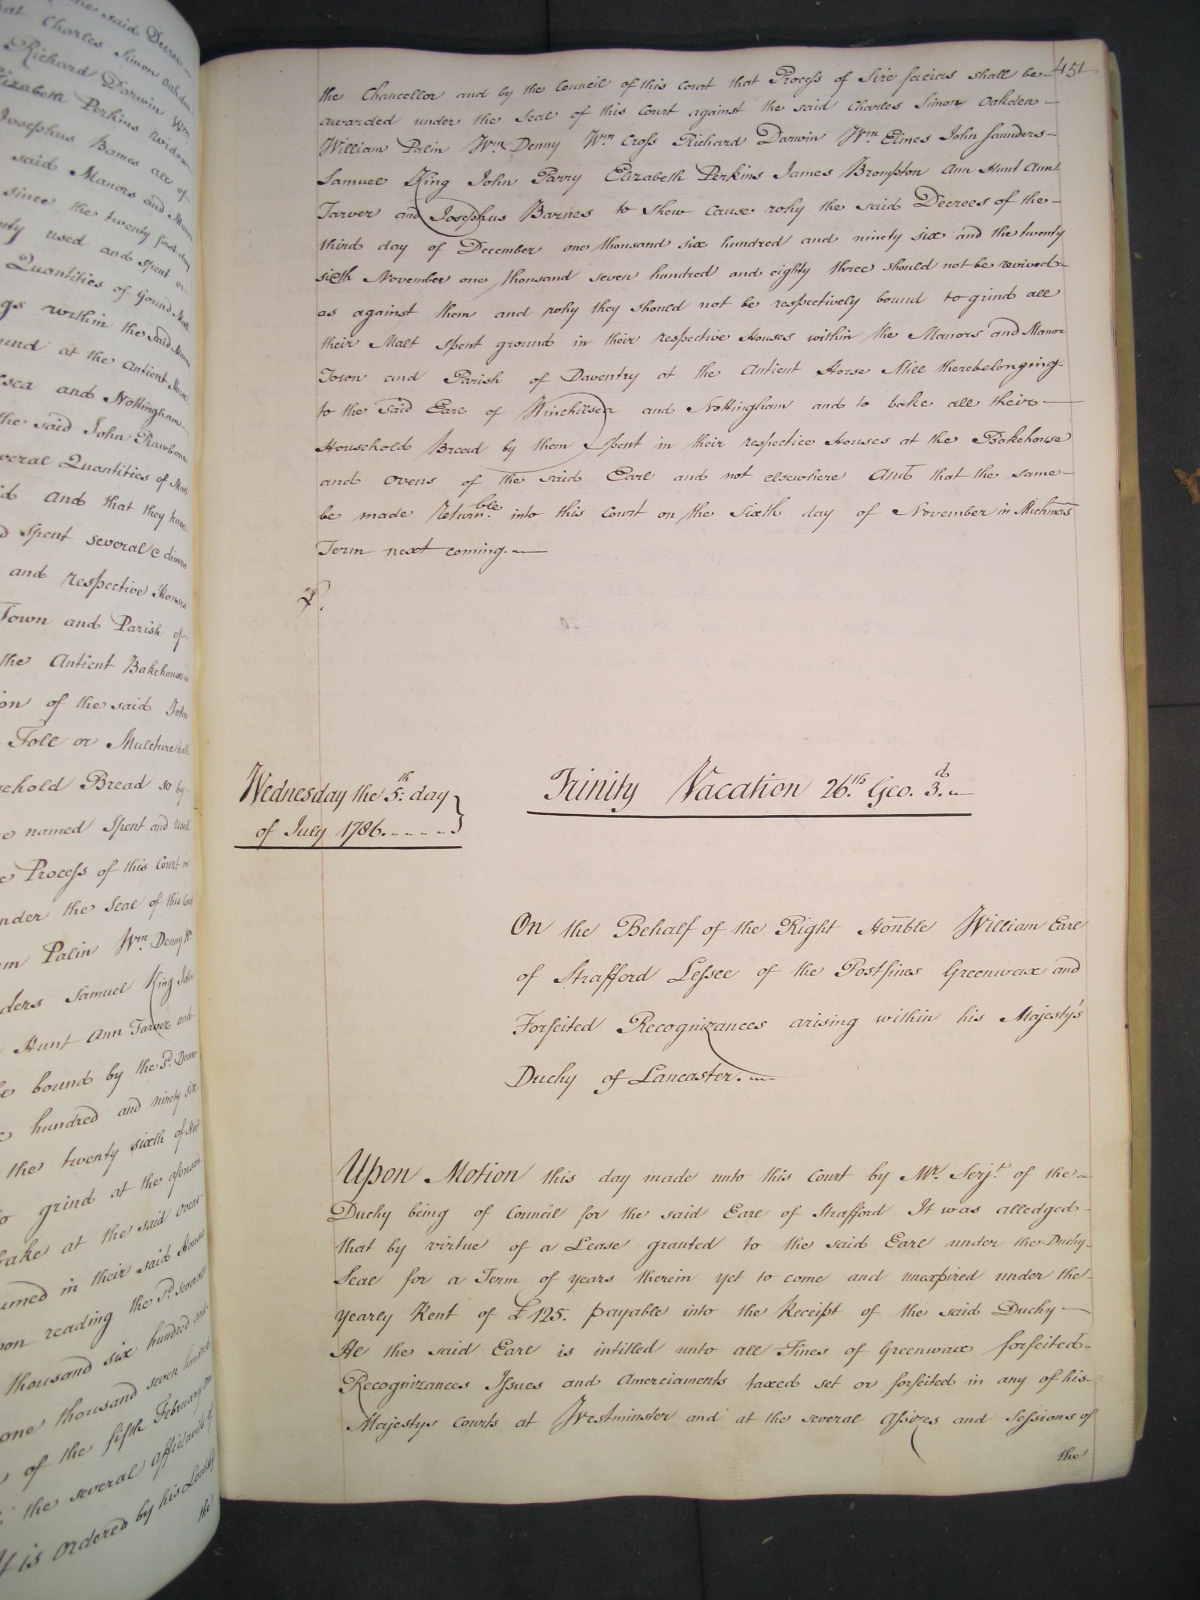 he said Decree
at Charles Simon Oakden
Richard Darwin Wm
Elizabeth Perkins Widow
Josephus Barnes all of
said Manors and Manor
since the twenty first day
used and spent
Quantities of Ground Malt
within the said Manor
at the Antient Horse
and Nottingham
the said John Rawbone
Several Quantities of Malt
and that they have
spent several & divers
and respective Houses
Town and Parish of
the Antient Bakehouse in
of the said John
Toll or Mulcture
Household Bread so by
named Spent and used
Process of this Court in
under the Seal of this Court
Palin Wm. Denny Wm
Samuel King John
Hunt Ann Tarver and
bound by the sd. Decree
hundred and ninety six
the twenty sixth of Novr
to grind at the aforesaid
bake at the said ovens
in their said Houses
upon reading the sd. several
thousand six hundred and
one thousand seven hundred
of the fifth February
the several affidavits of
It is Ordered by his Lordship
the
451
the Chancellor and by the Council of this Court that Process of Sire facias shall be
awarded under the Seal of this Court against the said Charles Simon Oakden
William Palin Wm Denny Wm Cross Richard Darwin Wm Elmes John Saunders
Samuel King John Parry Elizabeth Perkins James Brompton Ann Hunt Ann
Tarver and Josephus Barnes to Shew Cause why the said Decrees of the
third day of December one thousand six hundred and ninety six and the twenty
sixth November one thousand seven hundred and eighty three should not be revived
as against them and why they should not be respectively bound to grind all
their Malt Spent ground in their respective Houses within the Manors and Manor
Town and Parish of Daventry at the Antient Horse Mill therebelonging
to the said Earl of Winchilsea and Nottingham and to bake all their
Household Bread by them Spent in their respective Houses at the Bakehouse
and ovens of the said Earl and not elsewhere And that the same
be made Returnble into this Court on the Sixth day of November in Michmas
Term next coming.
Wednesday the 5th. day
of July 1786.
Trinity Vacation 26th. Geo. 3d.
On the Behalf of the Right Honble William Earl
of Strafford Lessee of the Postfines Greenwax and
Forfeited Recognizances arising within his Majesty's
Duchy of Lancaster.
Upon Motion this day made unto this Court by Mr. Serjt. of the
Duchy being of Council for the said Earl of Strafford It was alledged
that by virtue of a Lease granted to the said Earl under the Duchy
Seal for a Term of years therein yet to come and unexpired under the
yearly Rent of £125. payable into the Receipt of the said Duchy
He the said Earl is intitled unto all Fines of Greenwax forfeited
Recognizances Issues and Amerciaments taxed set or forfeited in any of his
Majestys Courts at Westminster and at the several Assizes and Sessions of
the